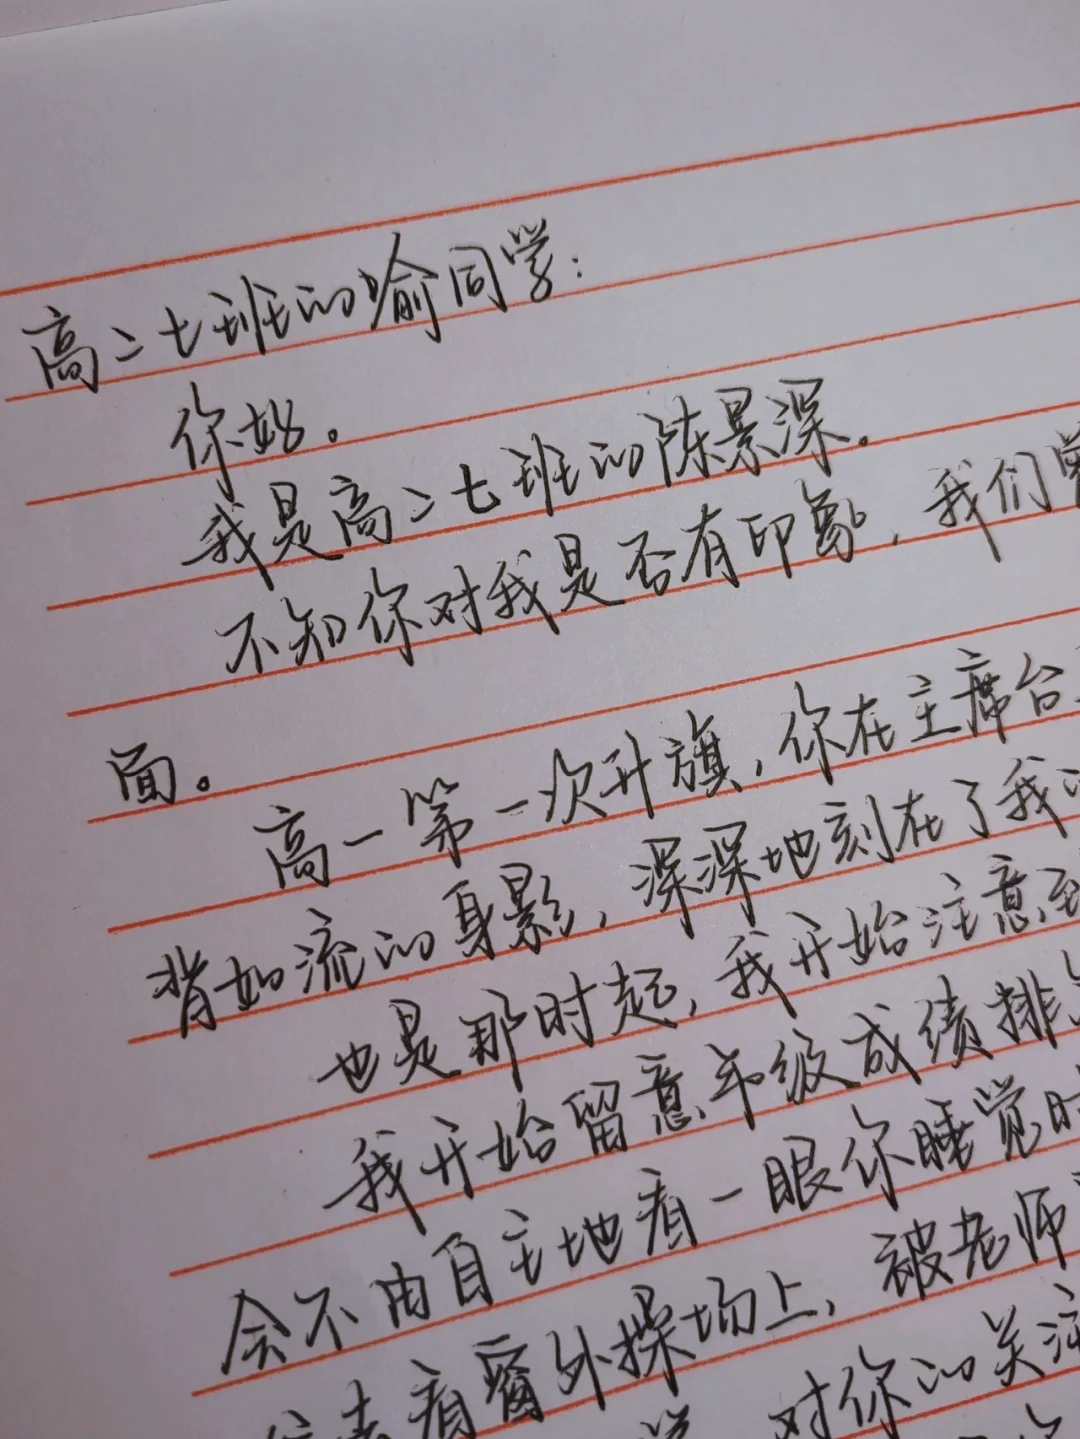 高二七班的喻同学：
你好。
我是高二七班的陈景深。
不知你对我是否有印象，我们
面。
高一第一次升旗，你在主席台
背如流的身影，深深地刻在了我
也是那时起，我开始注意
我开始留意年级成绩排
会不由自主地看一眼你睡觉时
看窗外操场上，被老师
对你的关注